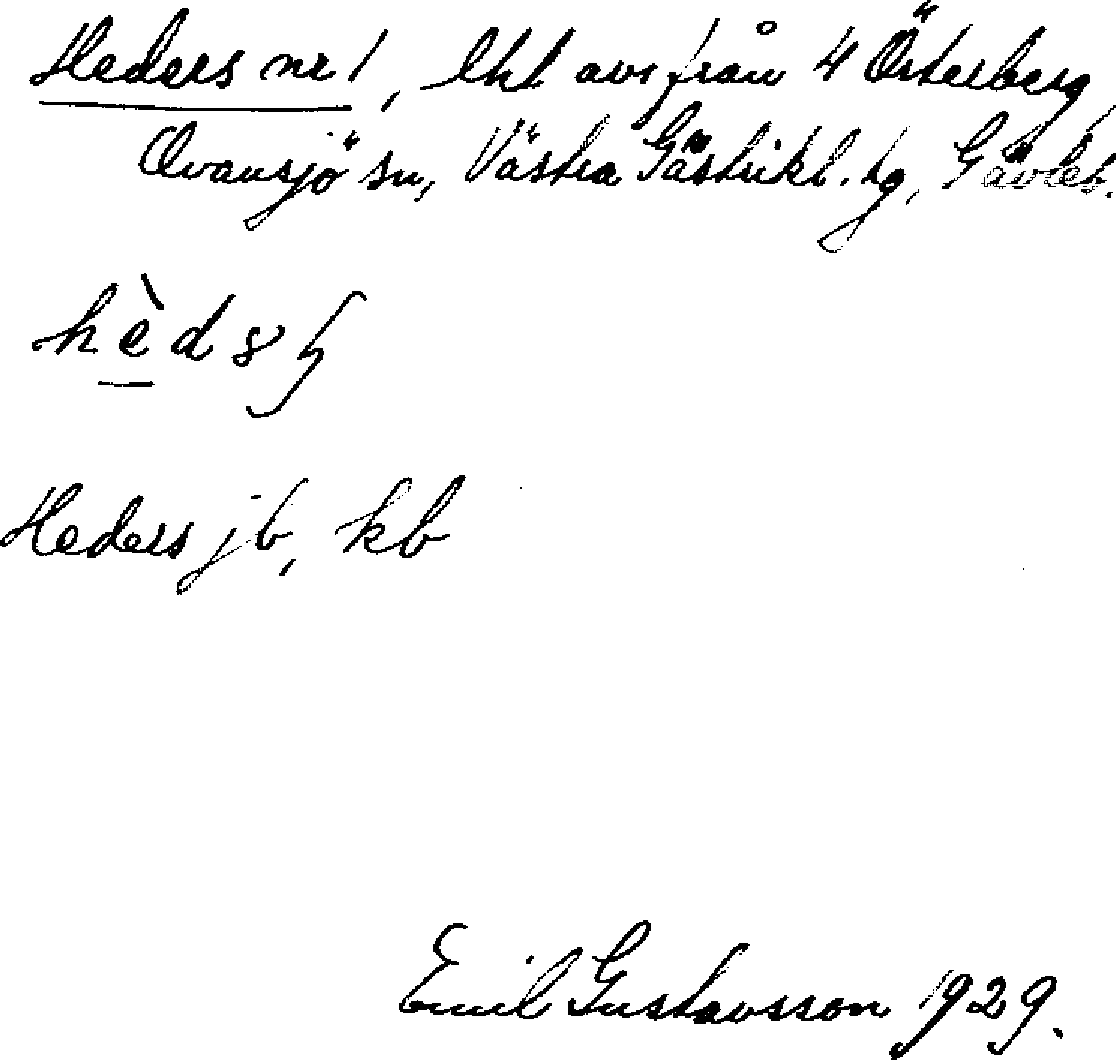 Heders nr 1, lht avs från 4 Österberg,
Ovansjö sn, Västra Gästrikl. tg, Gävleb.
hèd
Heders jb, kb
Emil Gustavsson 1929.